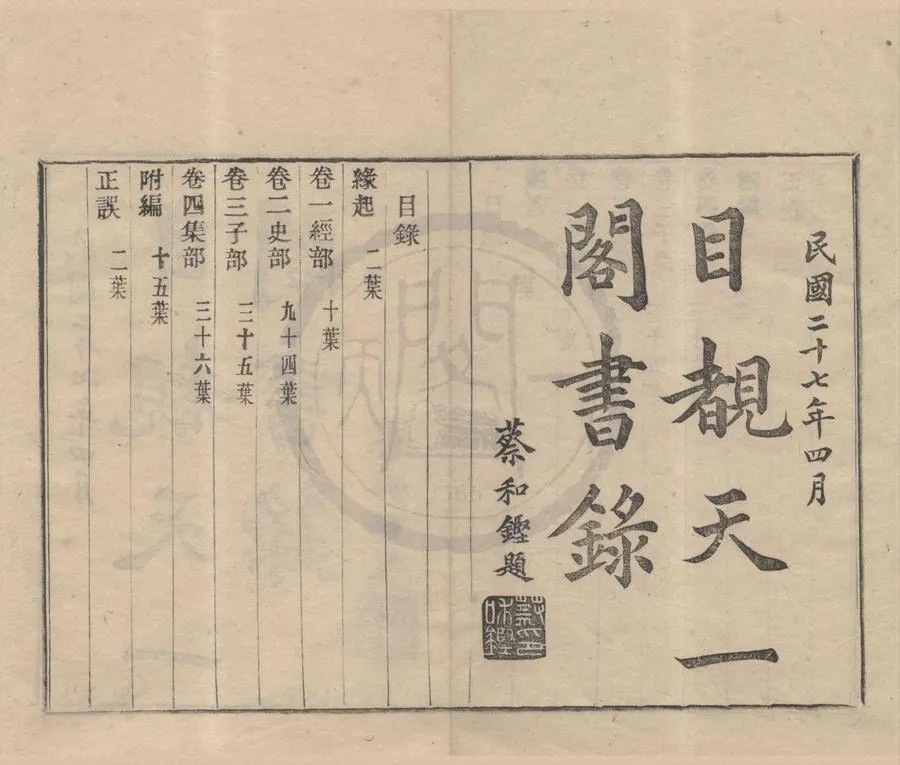 民國二十七年四月
目覩天一
閣書錄
蔡和鏗題
蔡印
和鏗
目錄
緣起 二葉
卷一經部 十葉
卷二史部 九十四葉
卷三子部 三十五葉
卷四集部 三十六葉
附編 十五葉
正誤 二葉
天一閣
1566